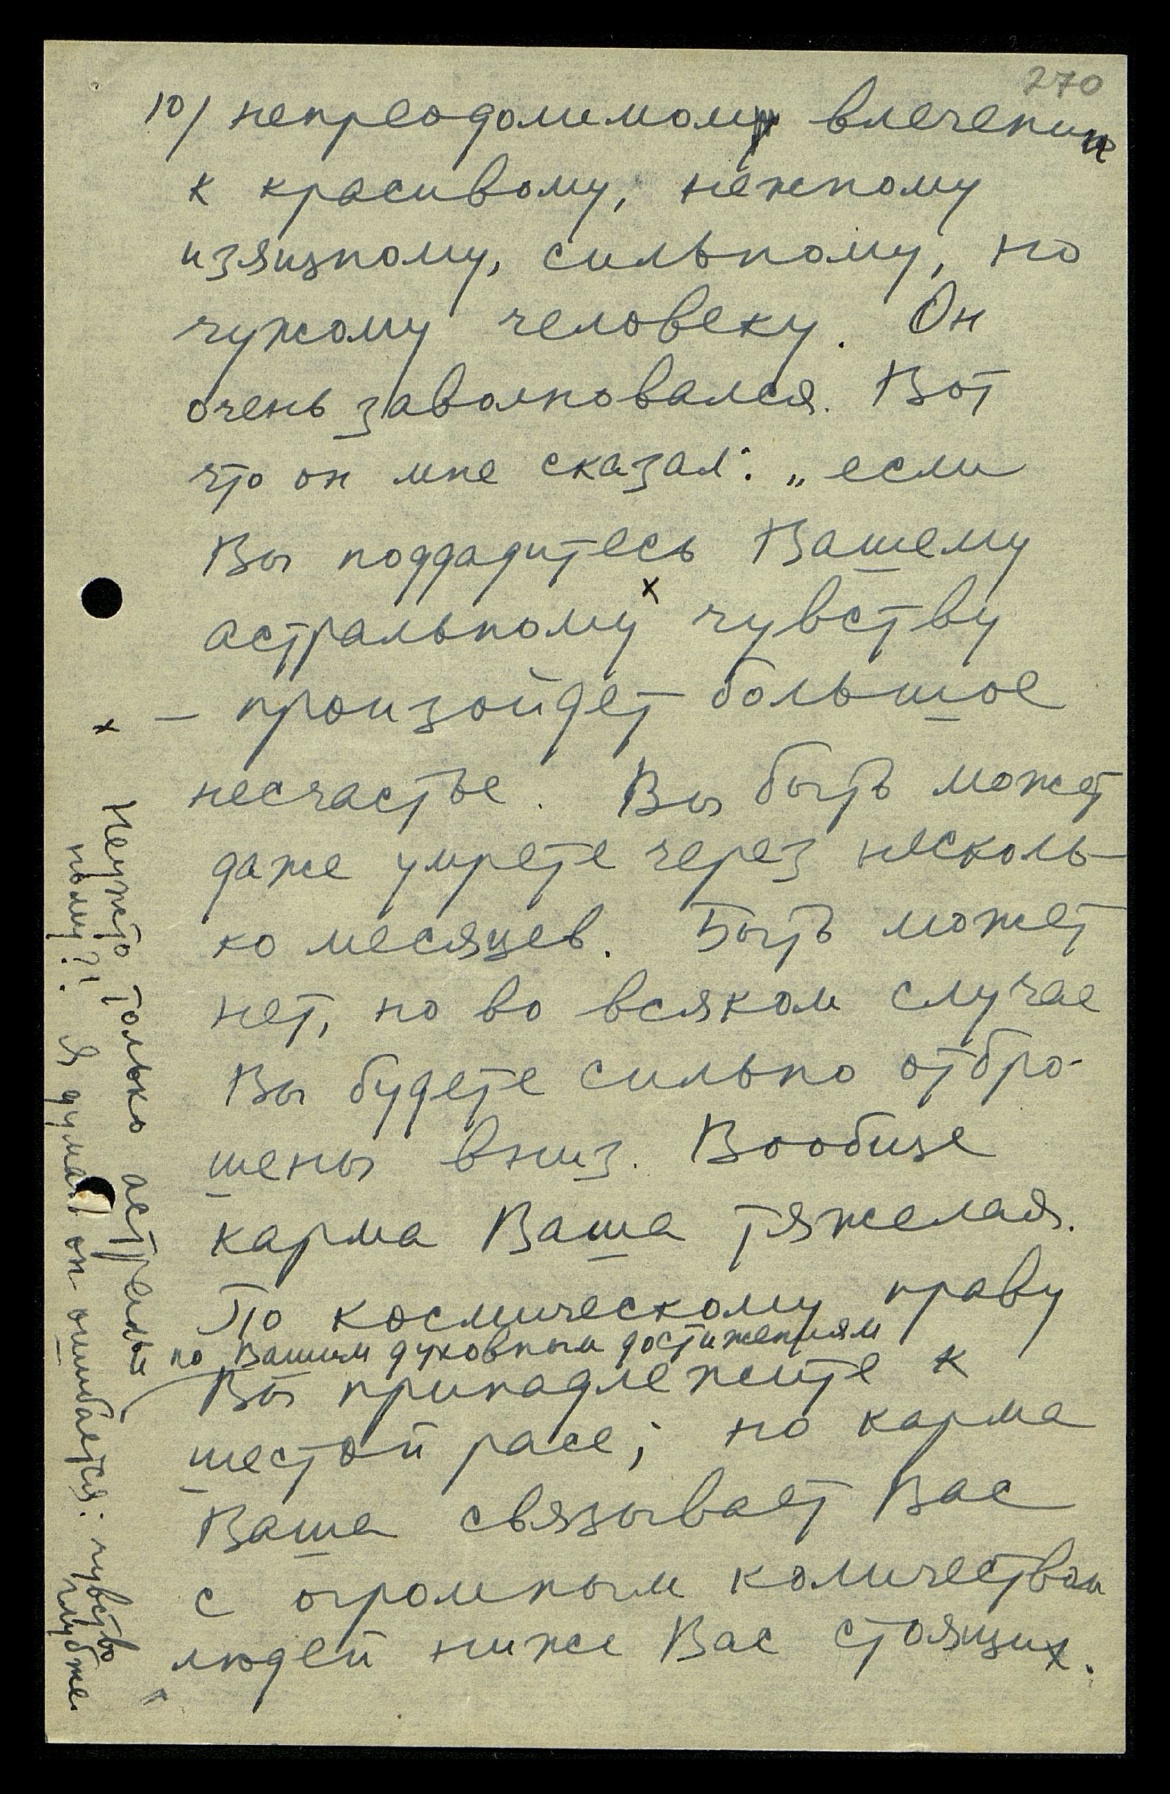 270
10/ непреодолимом влечении
к красивому, нежному
изящному, сильному, но
чужому человеку. Он
очень заволновался. Вот
что он мне сказал: „если
Вы поддадитесь Вашему
астральному x чувству
— произойдет большое
несчастье. Вы быть может
даже умрете через несколь-
ко месяцев. Быть может
нет, но во всяком случае
Вы будете сильно отбро-
шены вниз. Вообще
карма Ваша тяжелая.
По космическому праву
по Вашим духовным достижениям
Вы принадлежите к
шестой расе; но карма
Ваша связывает Вас
с огромным количеством
людей ниже Вас стоящих.
x Неужто только астраль-
ному?! Я думаю он ошибается: чувство
глубже